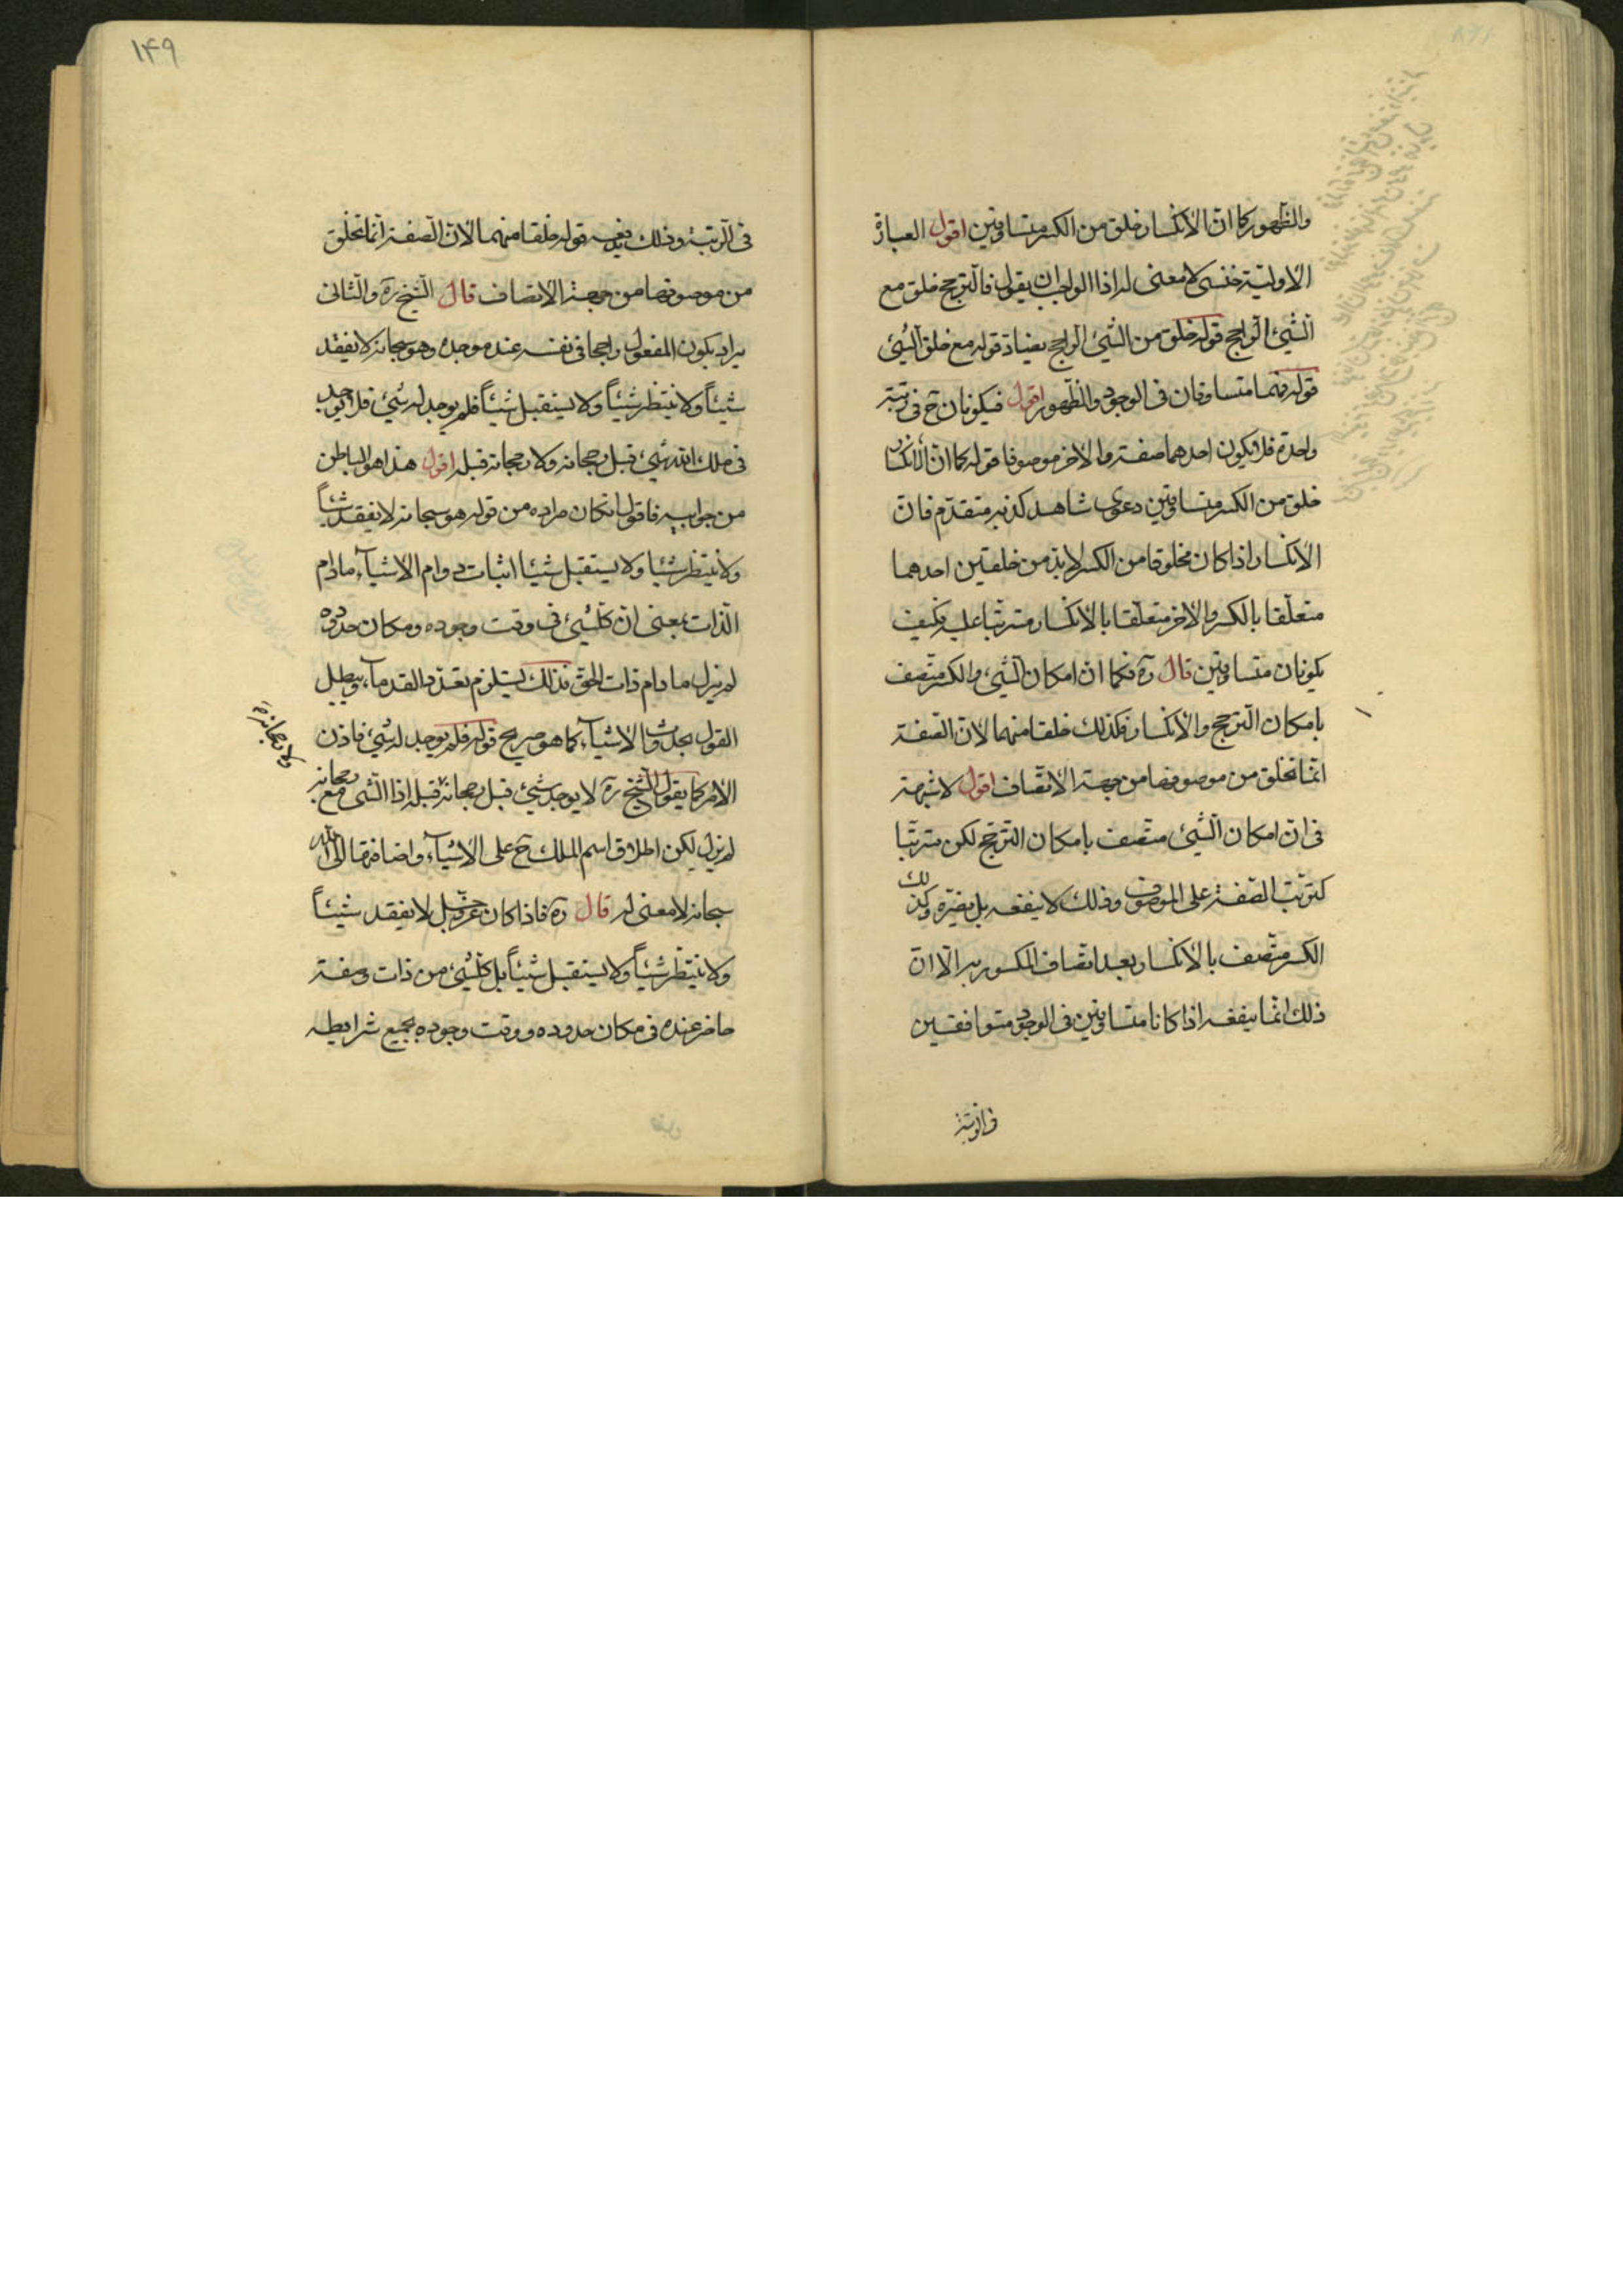 والظهور كما ان الانكسار خلق من الكسر متساوقين اقول العبارة
الاولية لا معنى له اذا الواجب ان يقول فالترجح خلق مع
الشيء الراجح قوله خلق من الشيء الراجح يضاد قوله مع خلق الشيء
قوله فهما متساوقان فى الوجود والظهور اقول فيكونان ح فى رتبة
واحدة فلا يكون احدهما صفة والاخر موصوفا قوله كما ان الانكسار
خلق من الكسر متساوقين دعوى شاهد كذبه متقدم فان
الانكسار اذا كان مخلوقا من الكسر لا بد من خلقتين احدهما
متعلقا بالكسر والاخر متعلقا بالانكسار مترتبا عليه فكيف
يكونان متساوقين قال ره فكما ان امكان الشيء والكسر متصف
بامكان الترجح والانكسار فكذلك خلقا منهما لان الصفة
انما تخلق من موصوفها من جهة الاتصاف اقول لا شبهة
فى ان امكان الشيء متصف بامكان الترجح لكن مترتبا
كترتب الصفة على الموصوف وذلك لا ينفعه بل يضره وكذلك
الكسر متصف بالانكسار بعد اتصاف المكسور به الا ان
ذلك انما ينفعه اذا كانا متساوقين فى الوجود متوافقين
فى الرتبة
١۴٩
فى الرتبة وذلك يدفعه قوله خلقا منهما لان الصفة انما تخلق
من موصوفها من جهة الاتصاف قال الشيخ ره والثانى
يراد بكون المفعول راجحا فى نفسه عند موجده وهو سبحانه لا يفقد
شيئاً ولا ينتظر شيئاً ولا يستقبل شيئاً فلم يوجد له شيء فلا يوجد
فى ملك الله شيء قبل رجحانه ولا رجحانه قبله اقول هذا هو الباطن
من جوابيه فاقول ان كان مراده من قوله هو سبحانه لا يفقد شيئاً
ولا ينتظر شيئا ولا يستقبل شيئا اثبات دوام الاشياء مادام
الذات بمعنى ان كل شيء فى وقت وجوده ومكان حدوده
لم يزل مادام ذات الحق فذلك يستلزم تعدد القدماء ويبطل
القول بحدوث الاشياء كما هو صريح قوله فلم يوجد له شيء فاذن
الامر كما يقول الشيخ ره لا يوجد شيء قبل رجحانه قبله اذا الشى مع رجحانه
ولا رجحانه
لم يزل لكن اطلاق اسم الملك ح على الاشياء واضافتها الى الله
سبحانه لا معنى له قال ره فاذا كان عز وجل لا يفقد شيئاً
ولا ينتظر شيئاً ولا يستقبل شيئاً بل كل شيء من ذات وصفة
حاضر عنده فى مكان حدوده ووقت وجوده بجميع شرايطه